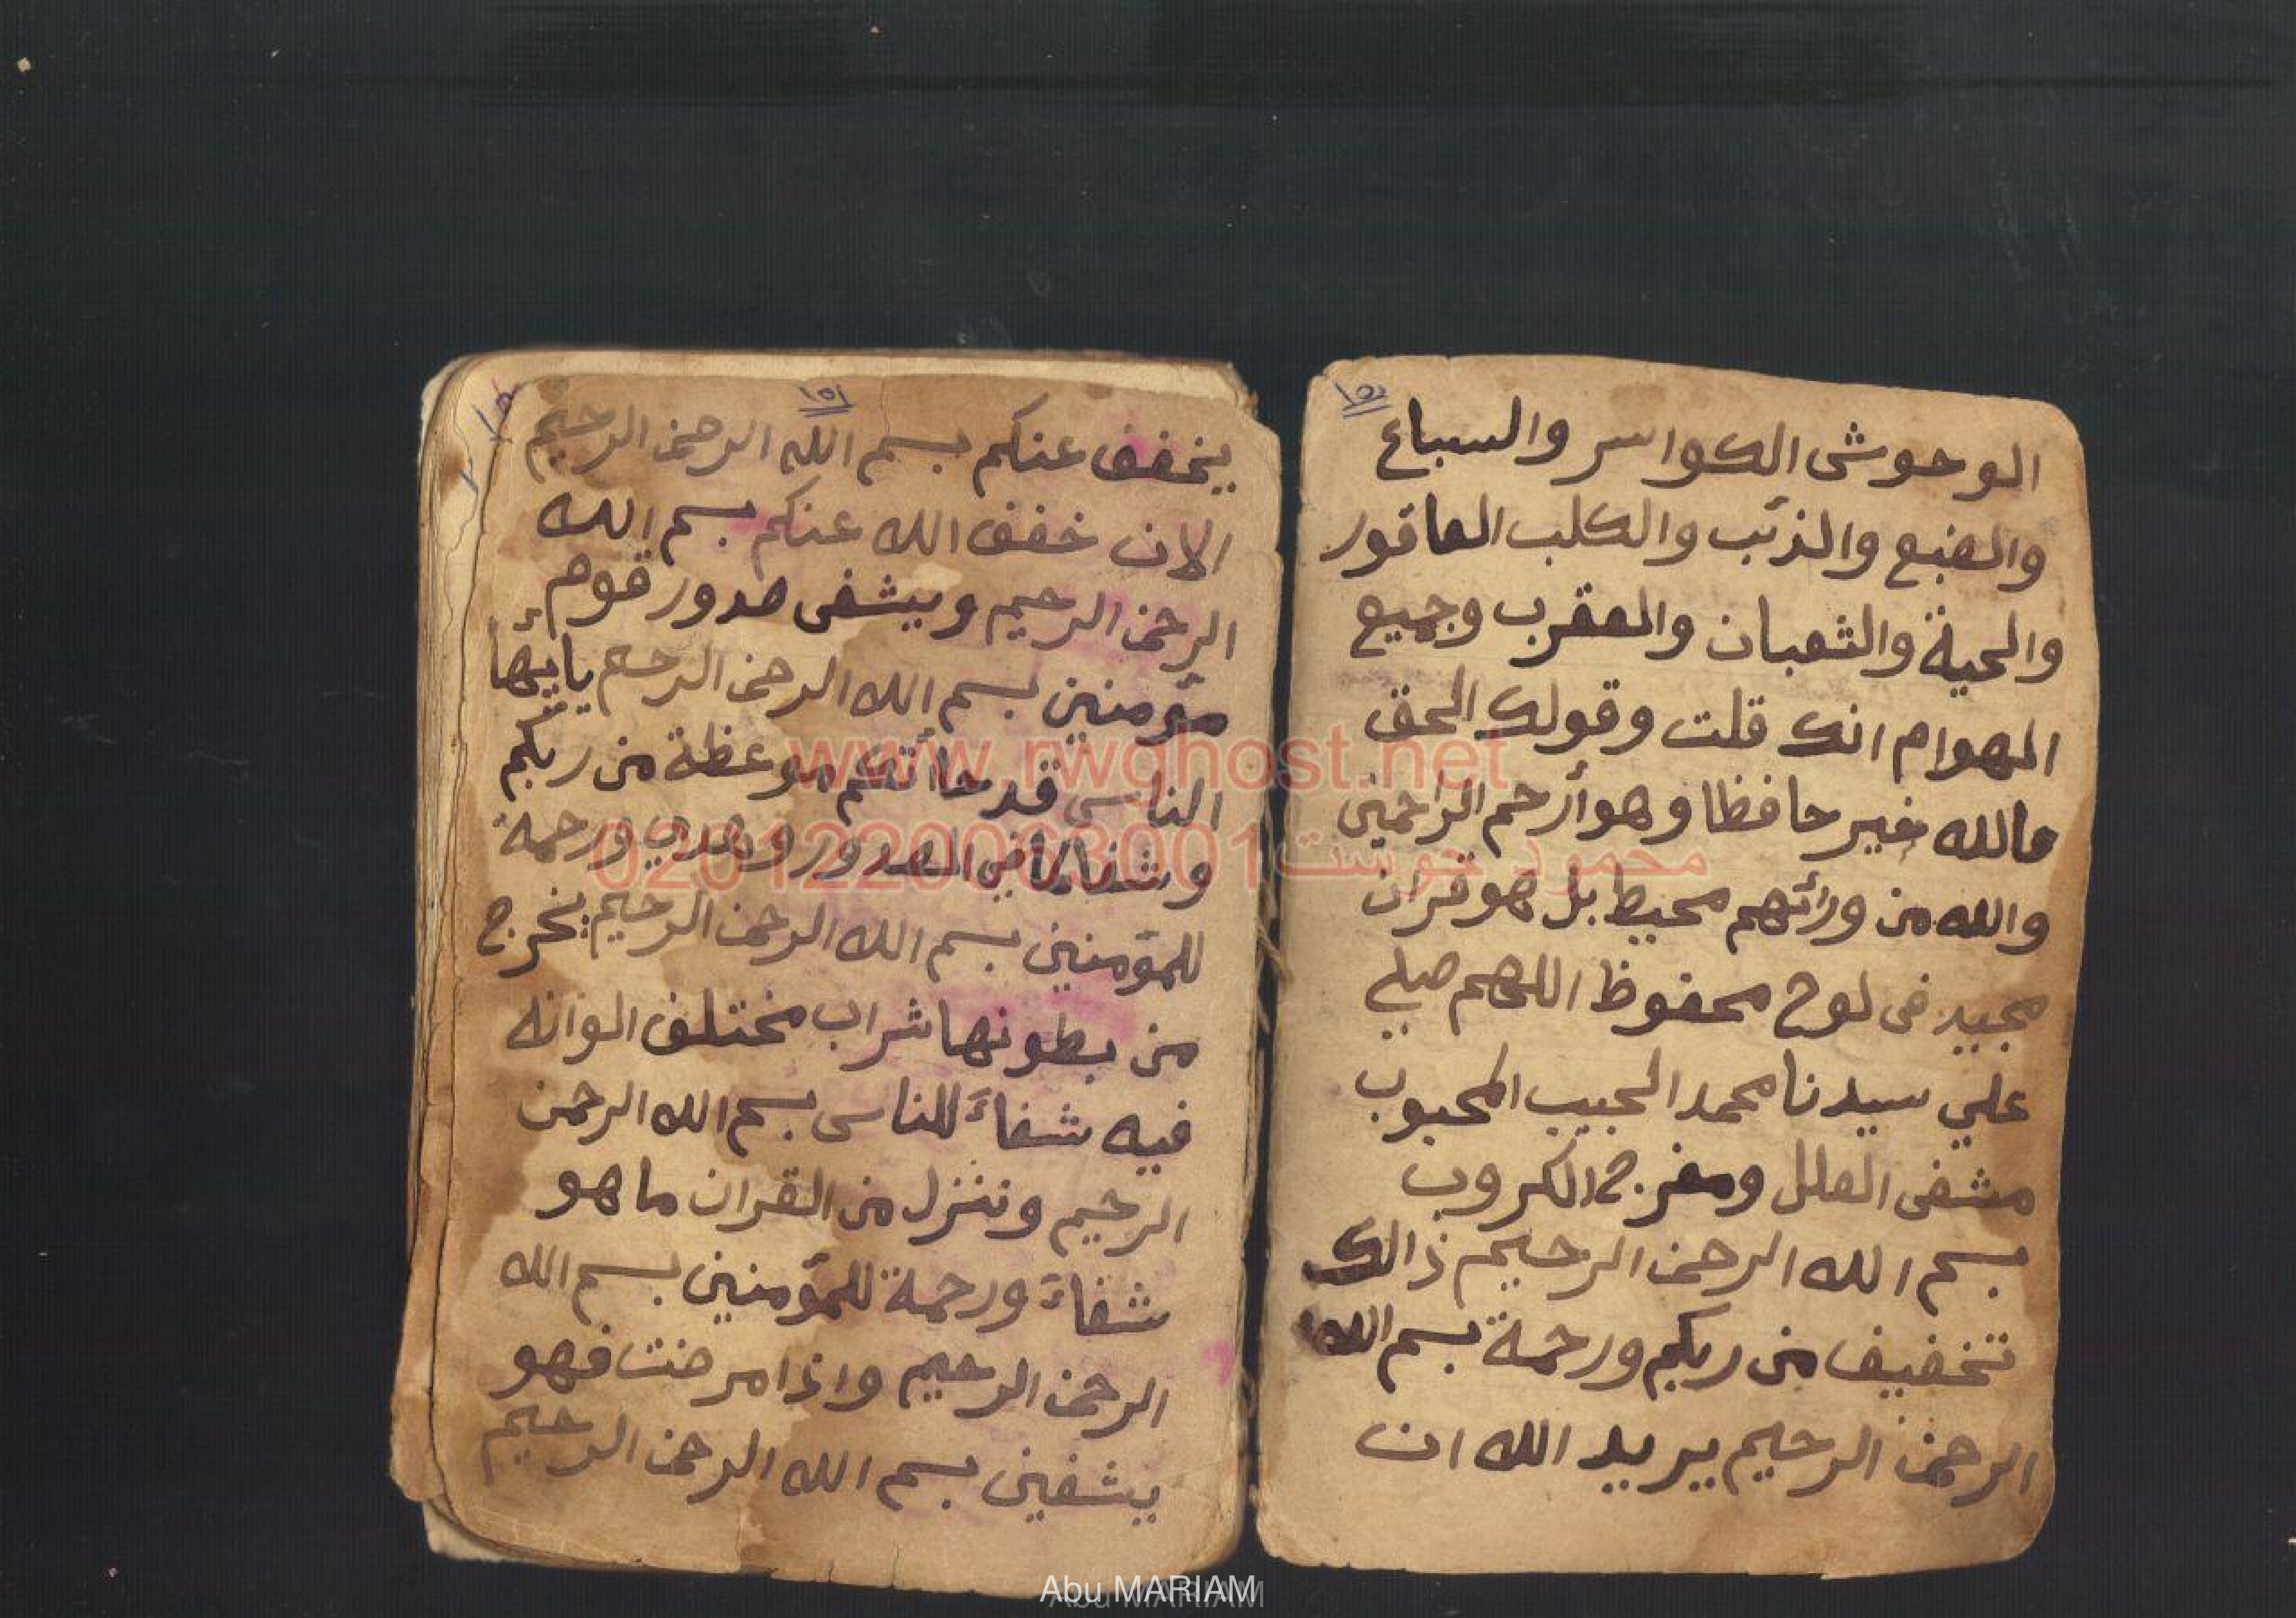 ١٥٠
الوحوش الكواسر والسباع
والضبع والذئب والكلب العاقور
والحية والثعبان والعقرب وجميع
الهوام انك قلت وقولك الحق
فالله خير حافظا وهو أرحم الراحمين
والله من ورائهم محيط بل هو قران
مجيد فى لوح محفوظ اللهم صلي
علي سيدنا محمد الحبيب المحبوب
مشفى العلل ومفرج الكروب
بسم الله الرحمن الرحيم ذالك
تخفيف من ربكم ورحمة بسم الله
الرحمن الرحيم يريد الله ان
١٥١
يخفف عنكم بسم الله الرحمن الرحيم
الان خفف الله عنكم بسم الله
الرحمن الرحيم ويشفى صدور قوم
مؤمنين بسم الله الرحمن الرحيم يايها
الناس قد جائتكم موعظة من ربكم
وشفا لما في الصدور وهدي ورحمة
للمؤمنين بسم الله الرحمن الرحيم يخرج
من بطونها شراب مختلف الوانه
فيه شفاء للناس بسم الله الرحمن
الرحيم وننزل من القران ما هو
شفاء ورحمة للمؤمنين بسم الله
الرحمن الرحيم واذا مرضت فهو
يشفين بسم الله الرحمن الرحيم
www.rwghost.net
محمود جوست 0201222006300 1
Abu MARIAM